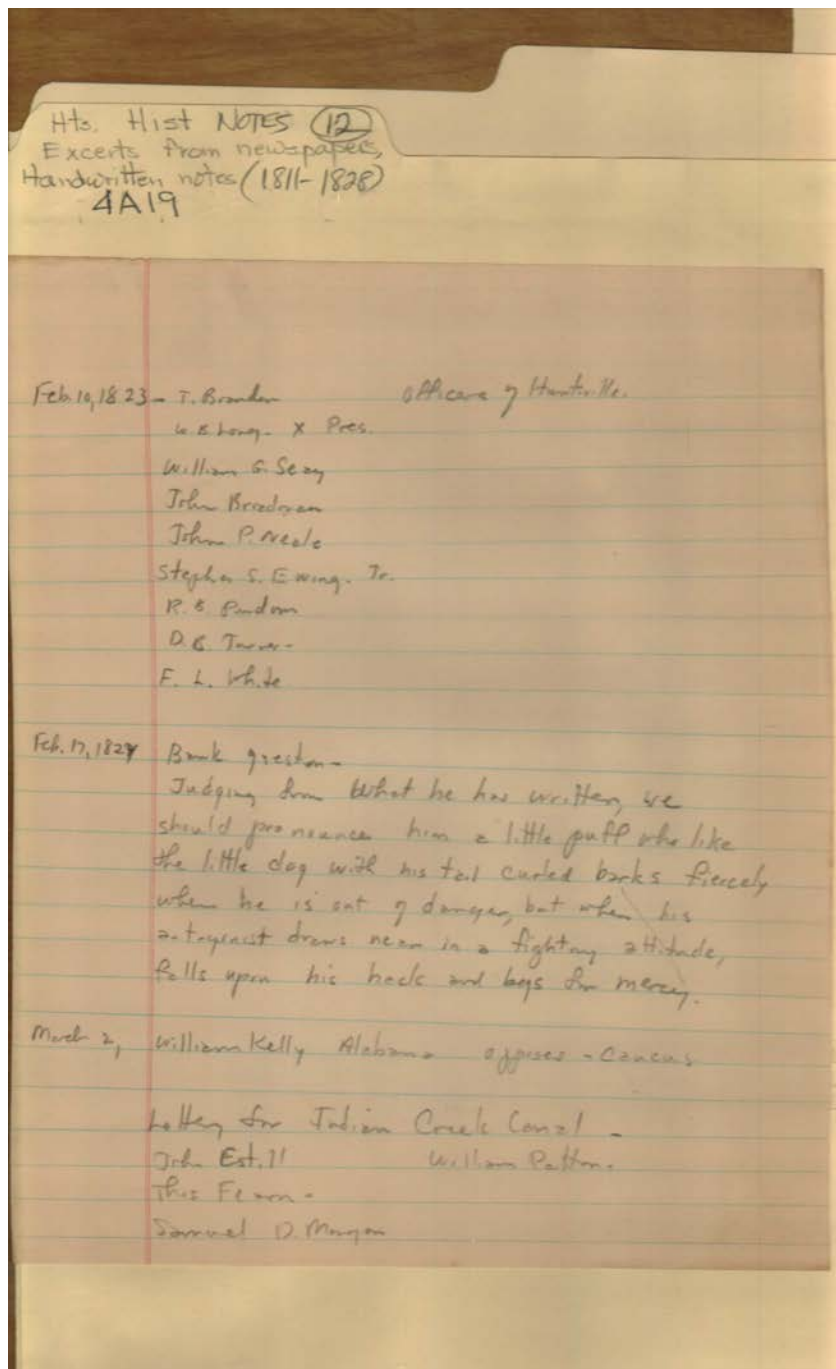 Hts. Hist NOTES (12)
Excerts from newspapers,
Handwritten notes (1811-1828)
4A19
Feb. 10, 1823 - T. Brandon Officers of Huntsville.
Long. X Pres.
William G. Seay
John Boardman
John P. Neale
Stephen S. Ewing. Tr.
R. B. Purdom
D. B. Turner -
F. L. White
Feb. 17, 1824 Bank question -
Judging from what he has written, we
should pronounce him a little puff who like
the little dog with his tail curled barks fiercely
when he is out of danger, but when his
antagonist draws near in a fighting attitude,
falls upon his back and begs for mercy.
March 2, William Kelly Alabama opposes - Caucus
Lottery for Indian Creek Canal -
John Estill William Patton.
Thos Fearn -
Samuel D. Morgan